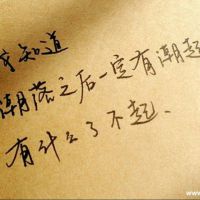 要知道
潮落之后一定有潮起
有什么了不起.
www.